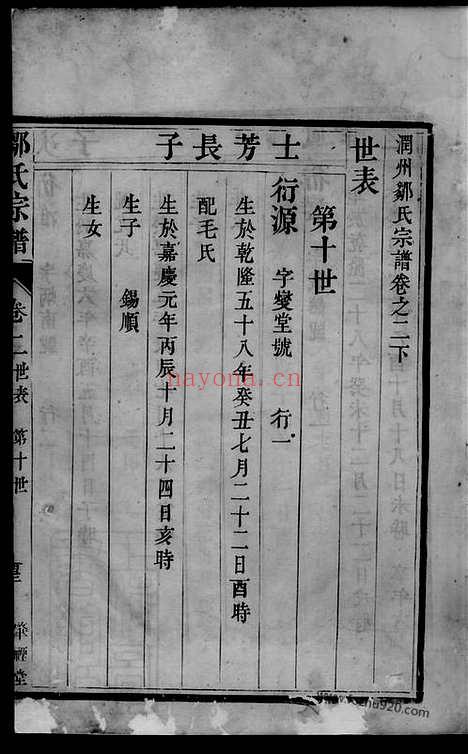 潤州鄒氏宗譜卷之二下
世表
第十世
士芳長子
衍源 字燮堂號 行一
生於乾隆五十八年癸丑七月二十二日酉時
配毛氏
生於嘉慶元年丙辰十月二十四日亥時
生子 錫順
生女
鄒氏宗譜
卷二世表 第十世
nayona.cn